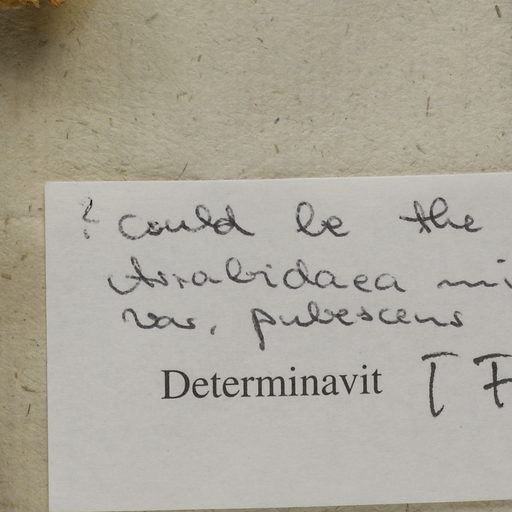 ? Could be the
Arrabidaea mi
var. pubescens
Determinavit [F